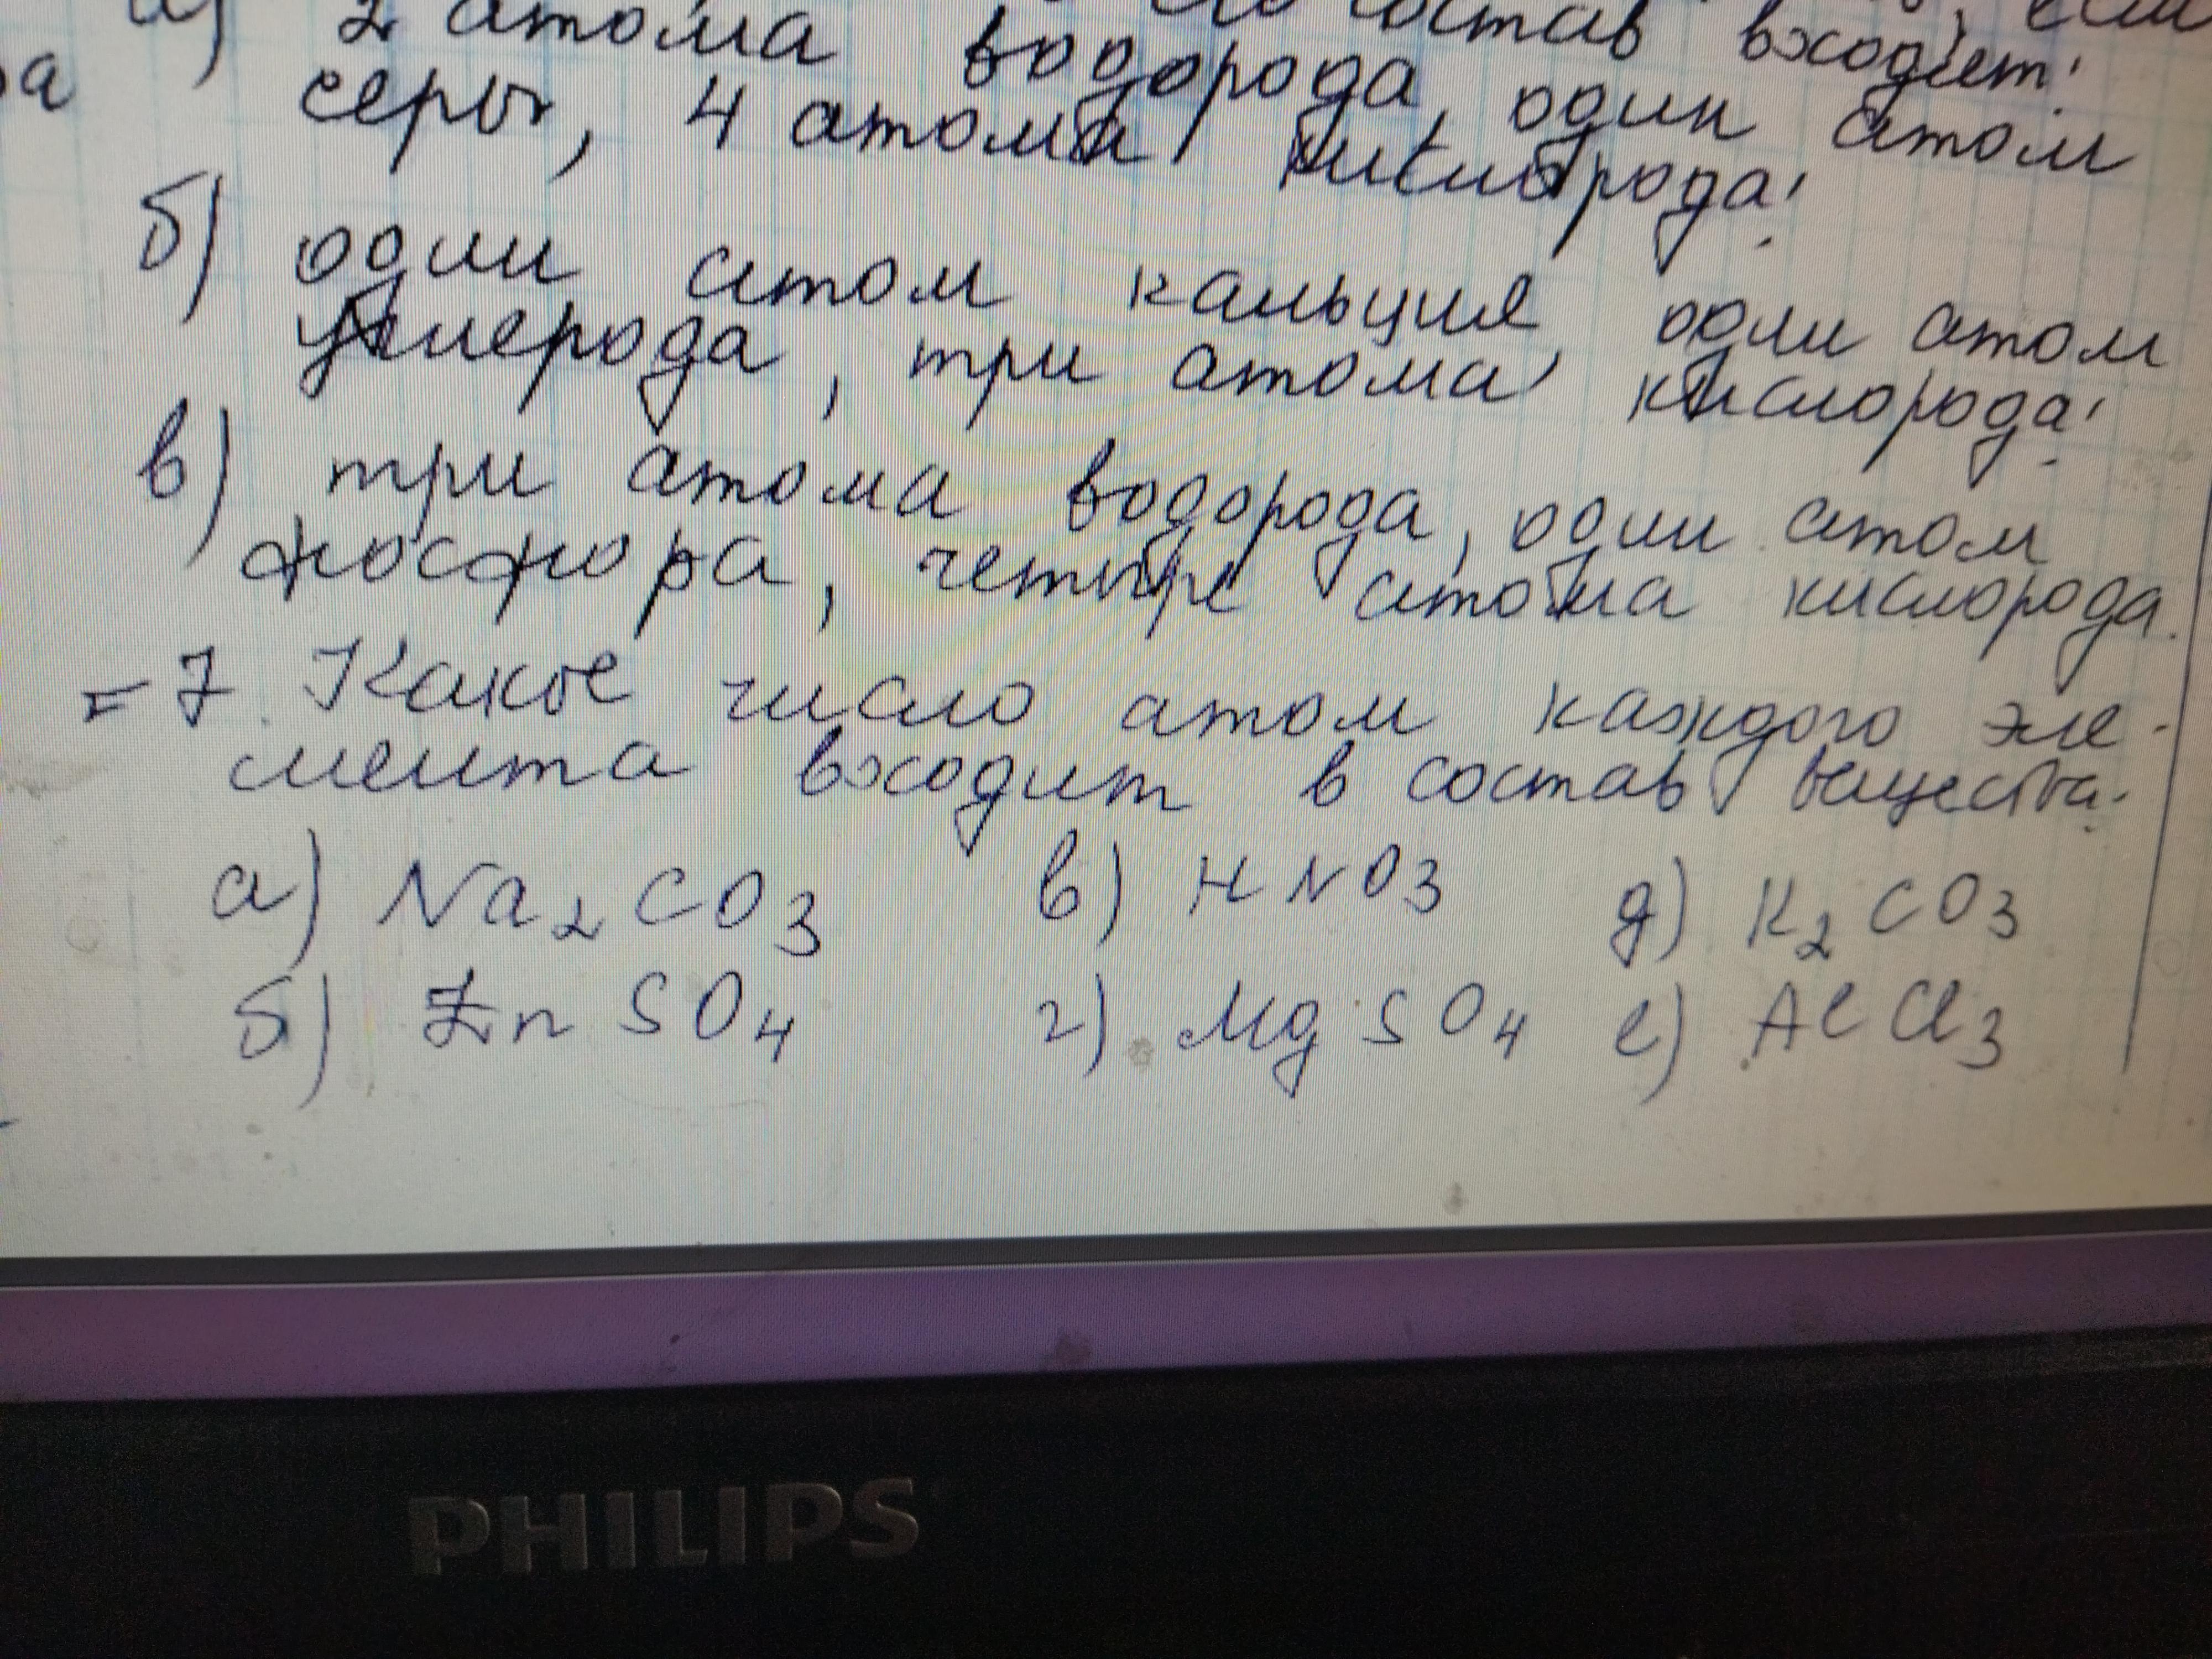 состав входит:
а) 2 атома водорода, один атом
серы, 4 атома кислорода;
б) один атом кальция, один атом
углерода, три атома кислорода;
в) три атома водорода, один атом
фосфора, четыре атома кислорода.
= 7. Какое число атом каждого эле-
мента входит в состав вещества.
а) Na2CO3 в) HNO3 д) K2CO3
б) ZnSO4 г) MgSO4 е) AlCl3
PHILIPS